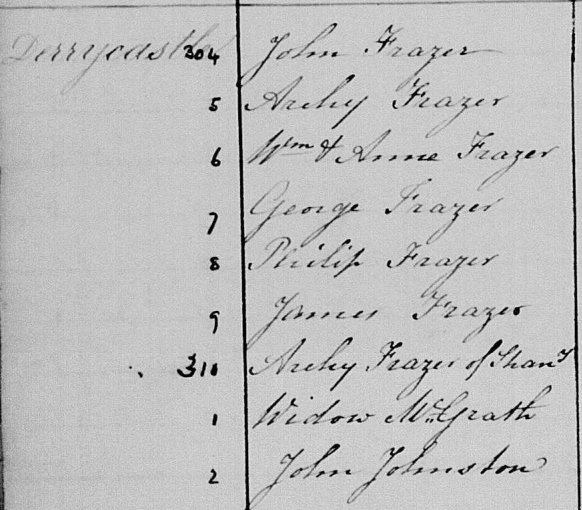 Derrycastle 304 John Frazer
5 Archy Frazer
6 Wm & Anne Frazer
7 George Frazer
8 Philip Frazer
9 James Frazer
310 Archy Frazer of
1 Widow McGrath
2 John Johnston